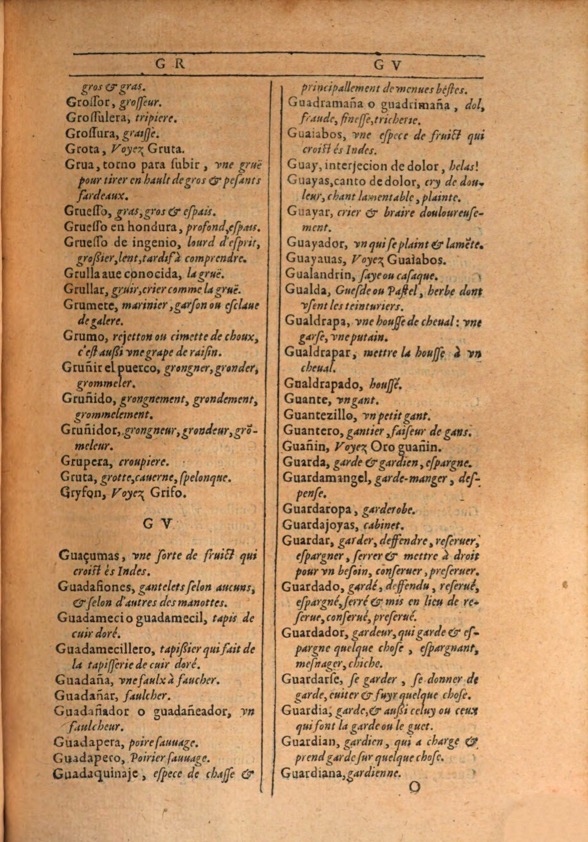 G R
gros & gras.
Grossor, grosseur.
Grossulera, tripiere.
Grossura, graisse.
Grota, Voyez Gruta.
Grua, torno para subir, vne gruë
pour tirer en hault de gros & pesants
fardeaux.
Gruesso, gras, gros & espais.
Gruesso en hondura, profond, espais.
Gruesso de ingenio, lourd d'esprit,
grossier, lent, tardif à comprendre.
Grulla aue conocida, la gruë.
Grullar, gruir, crier comme la gruë.
Grumete, marinier, garson ou esclaue
de galere.
Grumo, rejetton ou cimette de choux,
c'est aussi vne grape de raisin.
Gruñir el puerco, grongner, gronder,
grommeler.
Gruñido, grongnement, grondement,
grommelement.
Gruñidor, grongneur, grondeur, grō-
meleur.
Grupera, croupiere.
Gruta, grotte, cauerne, spelonque.
Gryfon, Voyez Grifo.
G V
Guaçumas, vne sorte de fruict qui
croist és Indes.
Guadafiones, gantelets selon aucuns,
& selon d'autres des manottes.
Guadameci o guadamecil, tapis de
cuir doré.
Guadamecillero, tapissier qui fait de
la tapisserie de cuir doré.
Guadaña, vne faulx à faucher.
Guadañar, faulcher.
Guadañador o guadañeador, vn
faulcheur.
Guadapera, poire sauuage.
Guadapero, Poirier sauuage.
Guadaquinaje, espece de chasse &
G V
principallement de menues bestes.
Guadramaña o guadrimaña, dol,
fraude, finesse, tricherie.
Guaiabos, vne espece de fruict qui
croist és Indes.
Guay, interjecion de dolor, helas!
Guayas, canto de dolor, cry de dou-
leur, chant lamentable, plainte.
Guayar, crier & braire douloureuse-
ment.
Guayador, vn qui se plaint & lamēte.
Guayauas, Voyez Guaiabos.
Gualandrin, saye ou casaque.
Gualda, Guesde ou Pastel, herbe dont
vsent les teinturiers.
Gualdrapa, vne housse de cheual: vne
garse, vne putain.
Gualdrapar, mettre la housse à vn
cheual.
Gualdrapado, houssé.
Guante, vn gant.
Guantezillo, vn petit gant.
Guantero, gantier, faiseur de gans.
Guañin, Voyez Oro guañin.
Guarda, garde & gardien, espargne.
Guardamangel, garde-manger, des-
pense.
Guardaropa, garderobe.
Guardajoyas, cabinet.
Guardar, garder, deffendre, reseruer,
espargner, serrer & mettre à droit
pour vn besoin, conseruer, preseruer.
Guardado, gardé, deffendu, reserué,
espargné, serré & mis en lieu de re-
serue, conserué, preserué.
Guardador, gardeur, qui garde & es-
pargne quelque chose, espargnant,
mesnager, chiche.
Guardarse, se garder, se donner de
garde, euiter & fuyr quelque chose.
Guardia, garde, & aussi celuy ou ceux
qui font la garde ou le guet.
Guardian, gardien, qui a charge &
prend garde sur quelque chose.
Guardiana, gardienne.
O